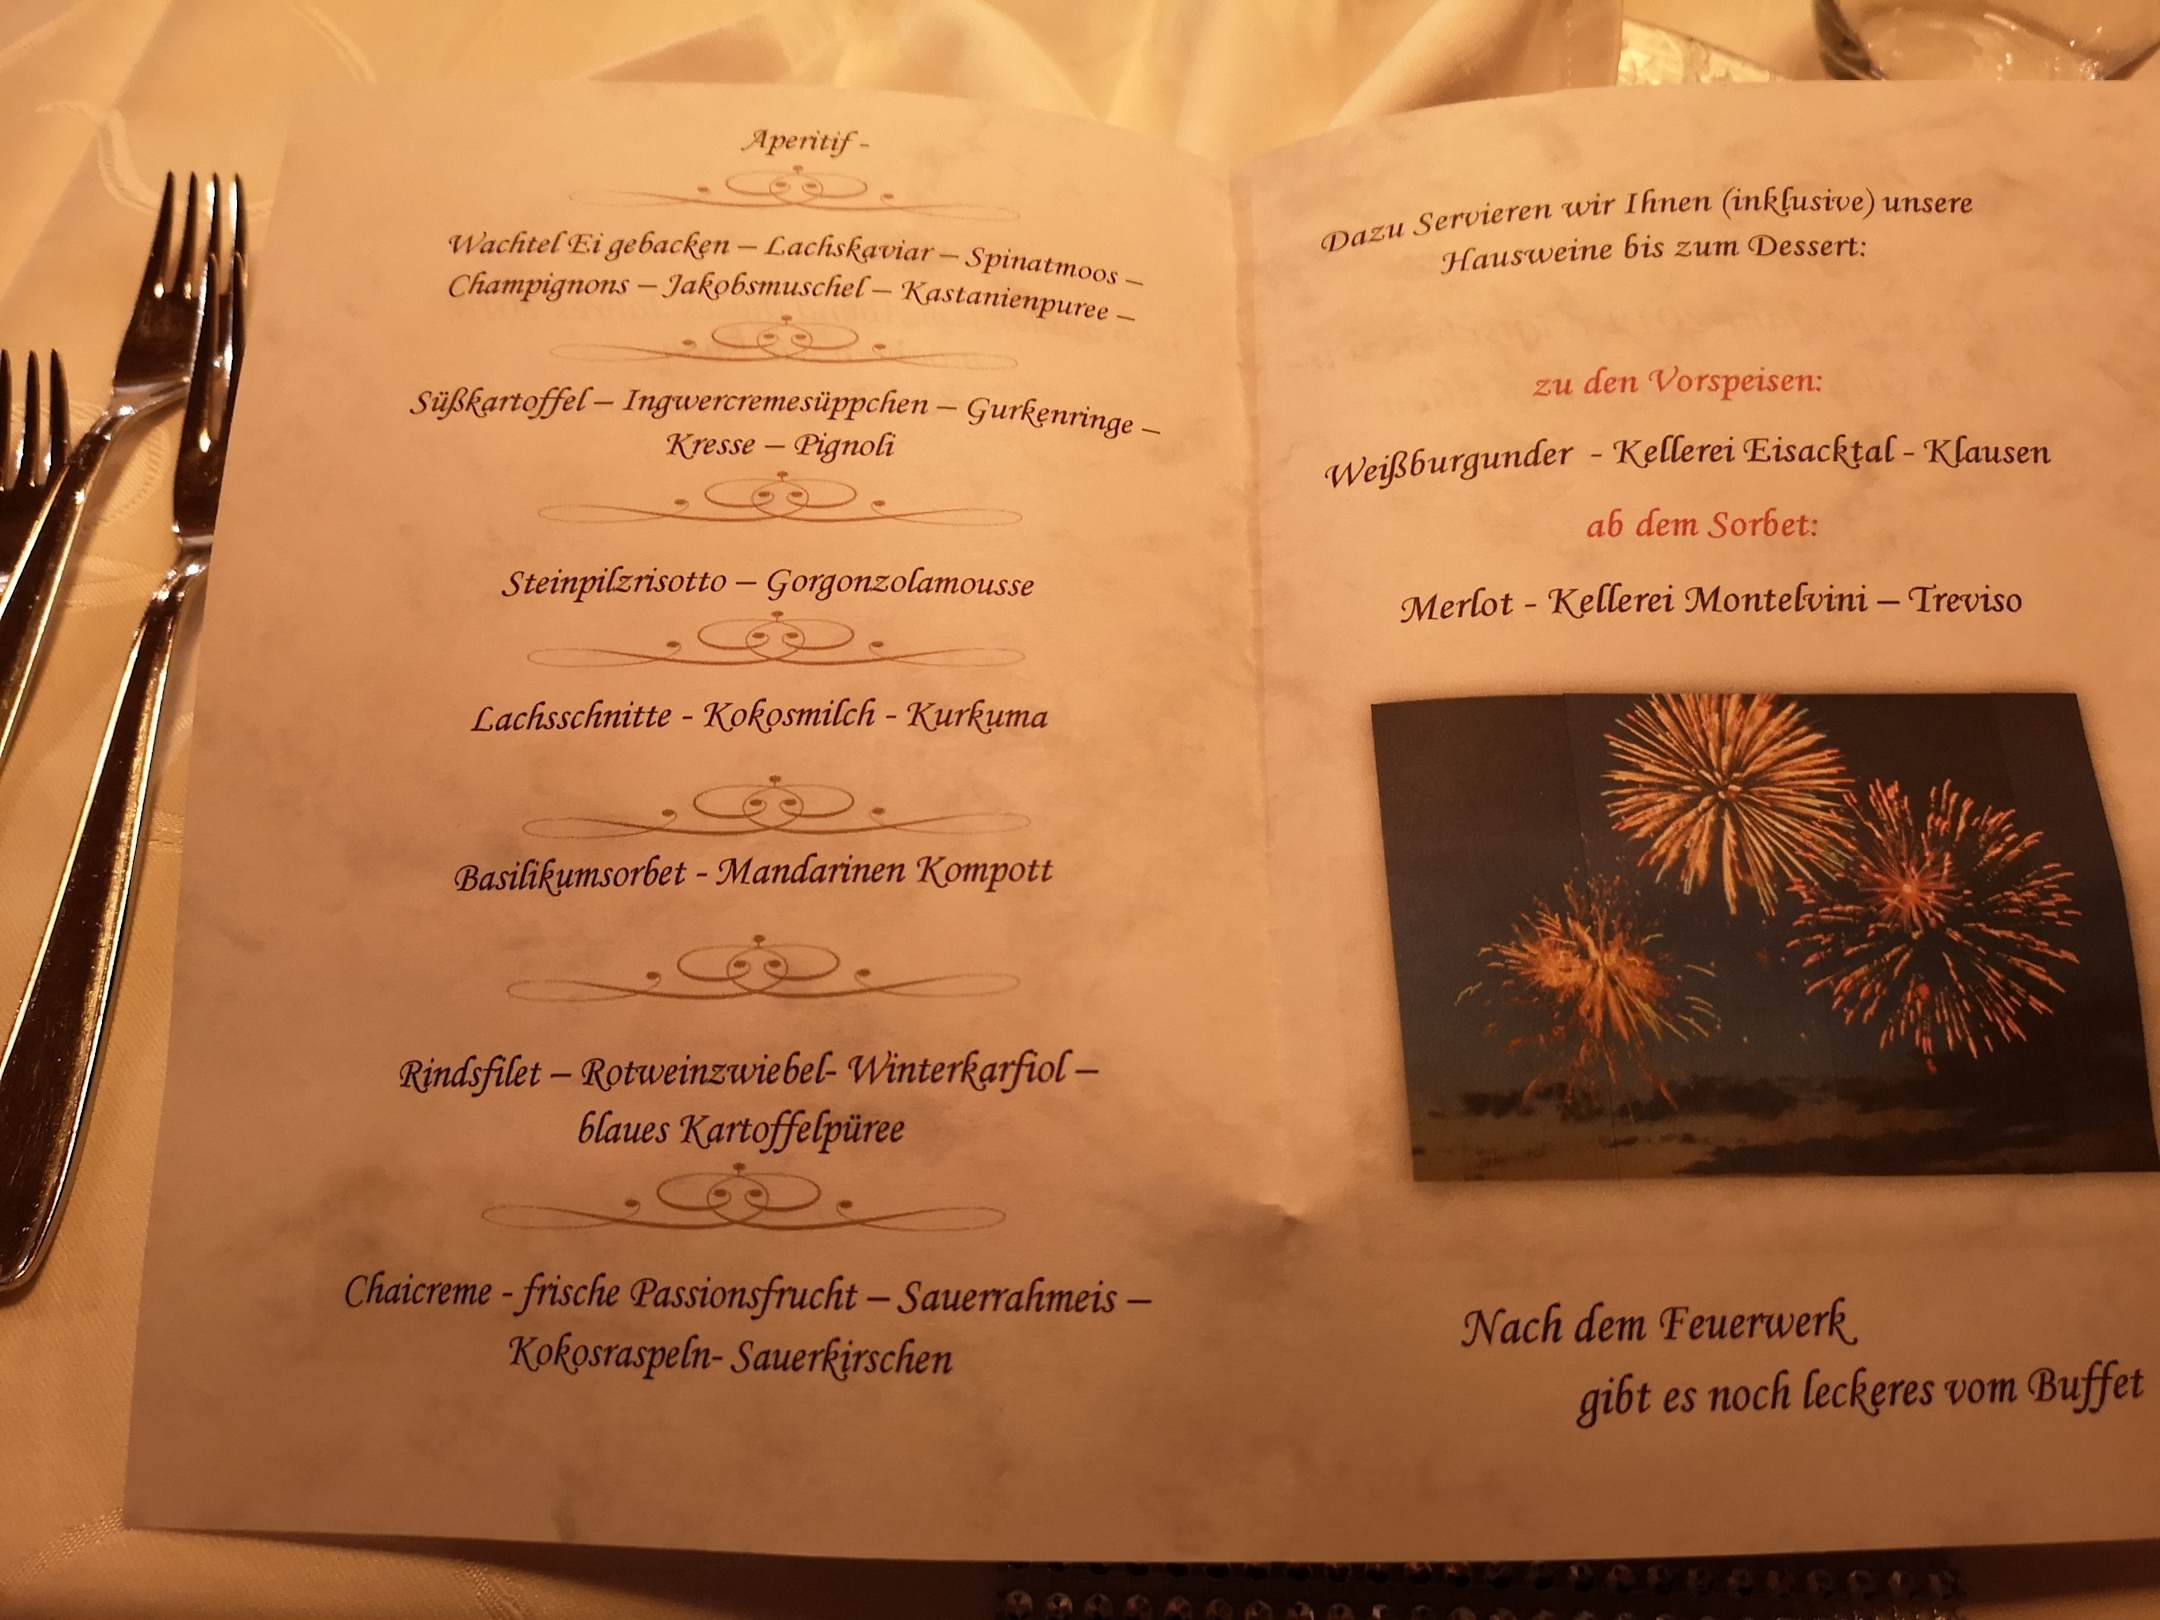 Aperitif -
Wachtel Ei gebacken – Lachskaviar – Spinatmoos –
Champignons – Jakobsmuschel – Kastanienpuree –
Süßkartoffel – Ingwercremesüppchen – Gurkenringe –
Kresse – Pignoli
Steinpilzrisotto – Gorgonzolamousse
Lachsschnitte - Kokosmilch - Kurkuma
Basilikumsorbet - Mandarinen Kompott
Rindsfilet – Rotweinzwiebel- Winterkarfiol –
blaues Kartoffelpüree
Chaicreme - frische Passionsfrucht – Sauerrahmeis –
Kokosraspeln- Sauerkirschen
Dazu Servieren wir Ihnen (inklusive) unsere
Hausweine bis zum Dessert:
zu den Vorspeisen:
Weißburgunder - Kellerei Eisacktal - Klausen
ab dem Sorbet:
Merlot - Kellerei Montelvini – Treviso
Nach dem Feuerwerk
gibt es noch leckeres vom Buffet